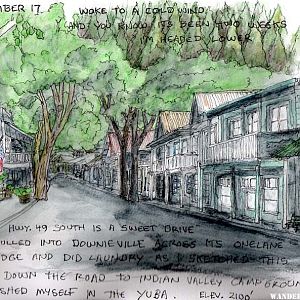 MBER 17. WOKE TO A COLD WIND.
AND YOU KNOW ITS BEEN TWO WEEKS
I'M HEADED LOWER
HWY. 49 SOUTH IS A SWEET DRIVE
PULLED INTO DOWNIEVILLE ACROSS ITS ONELANE
DGE AND DID LAUNDRY AS I SKETCHED THIS
DOWN THE ROAD TO INDIAN VALLEY CAMPGROUN
SHED MYSELF IN THE YUBA. ELEV. 2100'
WANDER